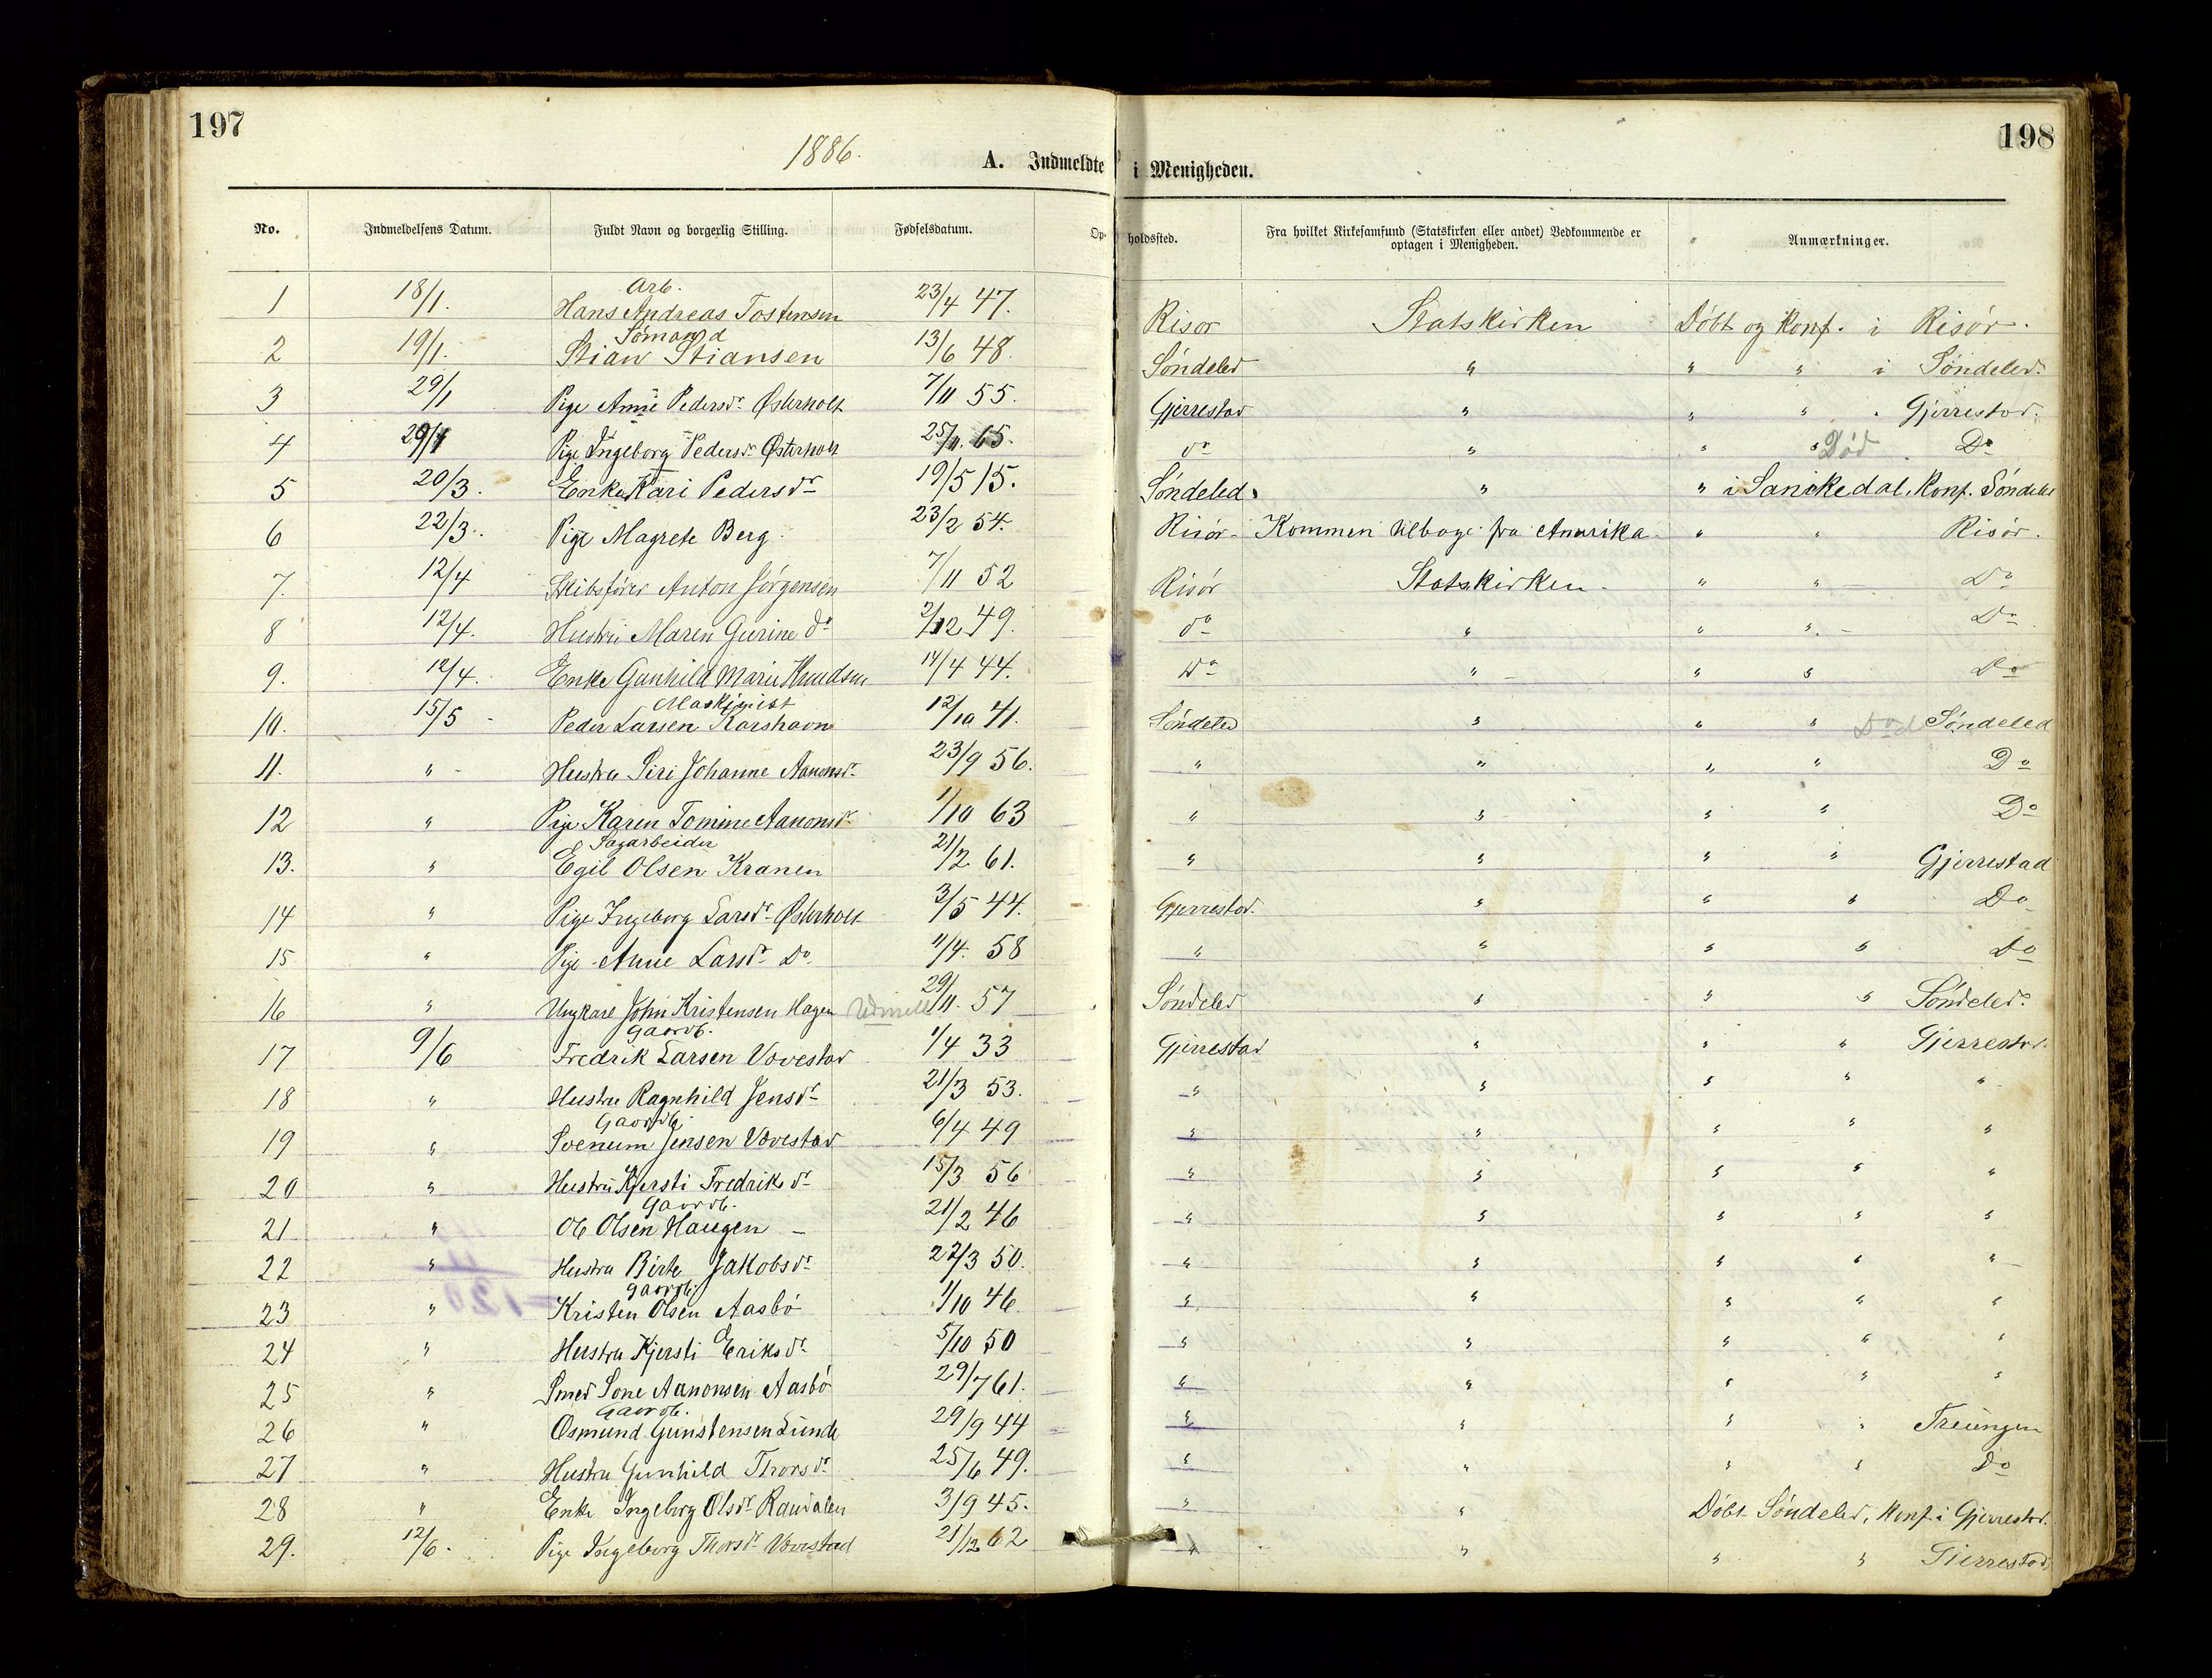 197
198
1886.
A. Indmeldte i Menigheden.
No. Indmeldelsens Datum. Fuldt Navn og borgerlig Stilling. Fødselsdatum. Opholdssted. Fra hvilket Kirkesamfund (Statskirken eller andet) Vedkommende er optagen i Menigheden. Anmærkninger.
Arb.
1 18/1. Hans Andreas Tostensen 23/4 47. Risør Statskirken Døbt og Konf. i Risør.
Sømand
2 19/1. Stian Stiansen 13/6 48. Søndeled " " " i Søndeled.
3 29/1 Pige Anne Pedersdr Østerholt 7/11 55. Gjerrestad " " " Gjerrestad.
4 29/1 Pige Ingeborg Pedersdr Østerholt 25/11. 65. do " " " Død. Do
5 20/3. Enke Kari Pedersdr 19/5 15. Søndeled " " i Sanikedal, Konf. Søndeled
6 22/3. Pige Magrete Berg. 23/2 54. Risør Kommen tilbage fra Amerika. " " Risør.
7. 12/4 Skibsfører Anton Jørgensen 7/11 52 Risør Statskirken " " Do
8 12/4. Hustru Maren Gurine do 2/12 49. do " " " Do
9. 12/4. Enke Gunhild Marie Knudsen 14/4 44. Do " " " Do
Maskinist
10. 15/5 Peder Larsen Korshavn 12/10 41. Søndeled " " " Død Søndeled
11. " Hustru Siri Johanne Aanonsdr 23/9 56. " " " " Do
12 " Pige Karen Tomine Aanonsdr 1/10 63 " " " " Do
Sagarbeider
13. " Egil Olsen Kranen 21/2 61. " " " " Gjerrestad
14 " Pige Ingeborg Larsdr Østerholt 3/5 44. Gjerrestad. " " " Do
15 " Pige Anne Larsdr Do 11/4. 58 " " " " Do
16 " Ungkarl John Kristensen Hagen Udmeldt 29/11. 57 Søndeled " " " Søndeled.
Gaardb.
17 9/6 Fredrik Larsen Vovestad 1/4 33 Gjerrestad " " " Gjerrestad.
18 " Hustru Ragnhild Jensdr 21/3 53. " " " " "
Gaardb.
19 " Svenum Jensen Vovestad 6/4 49 " " " " "
20 " Hustru Kjersti Fredriksdr 15/3 56 " " " " "
Gaardb.
21 " Ole Olsen Haugen 21/2 46 " " " " "
22 " Hustru Birte Jakobsdr 27/3 50. " " " " "
Gaardb.
23 " Kristen Olsen Aasbø 1/10 46. " " " " "
24 " Hustru Kjersti Eriksdr 5/10 50 " " " " "
25 " Smed Sone Aanonsen Aasbø 29/7 61. " " " " "
Gaardb.
26 " Osmund Gunstensen Lunde 29/9 44 " " " " Treungen
27 " Hustru Gunhild Thorsdr 25/6 49. " " " " Do
28 " Enke Ingeborg Olsdr Raudalen 3/9 45. " " Døbt Søndeled, Konf. i Gjerrestad.
29. 12/6. Pige Ingeborg Thorsdr Vovestad 21/12 62 " " " " Gjerrestad